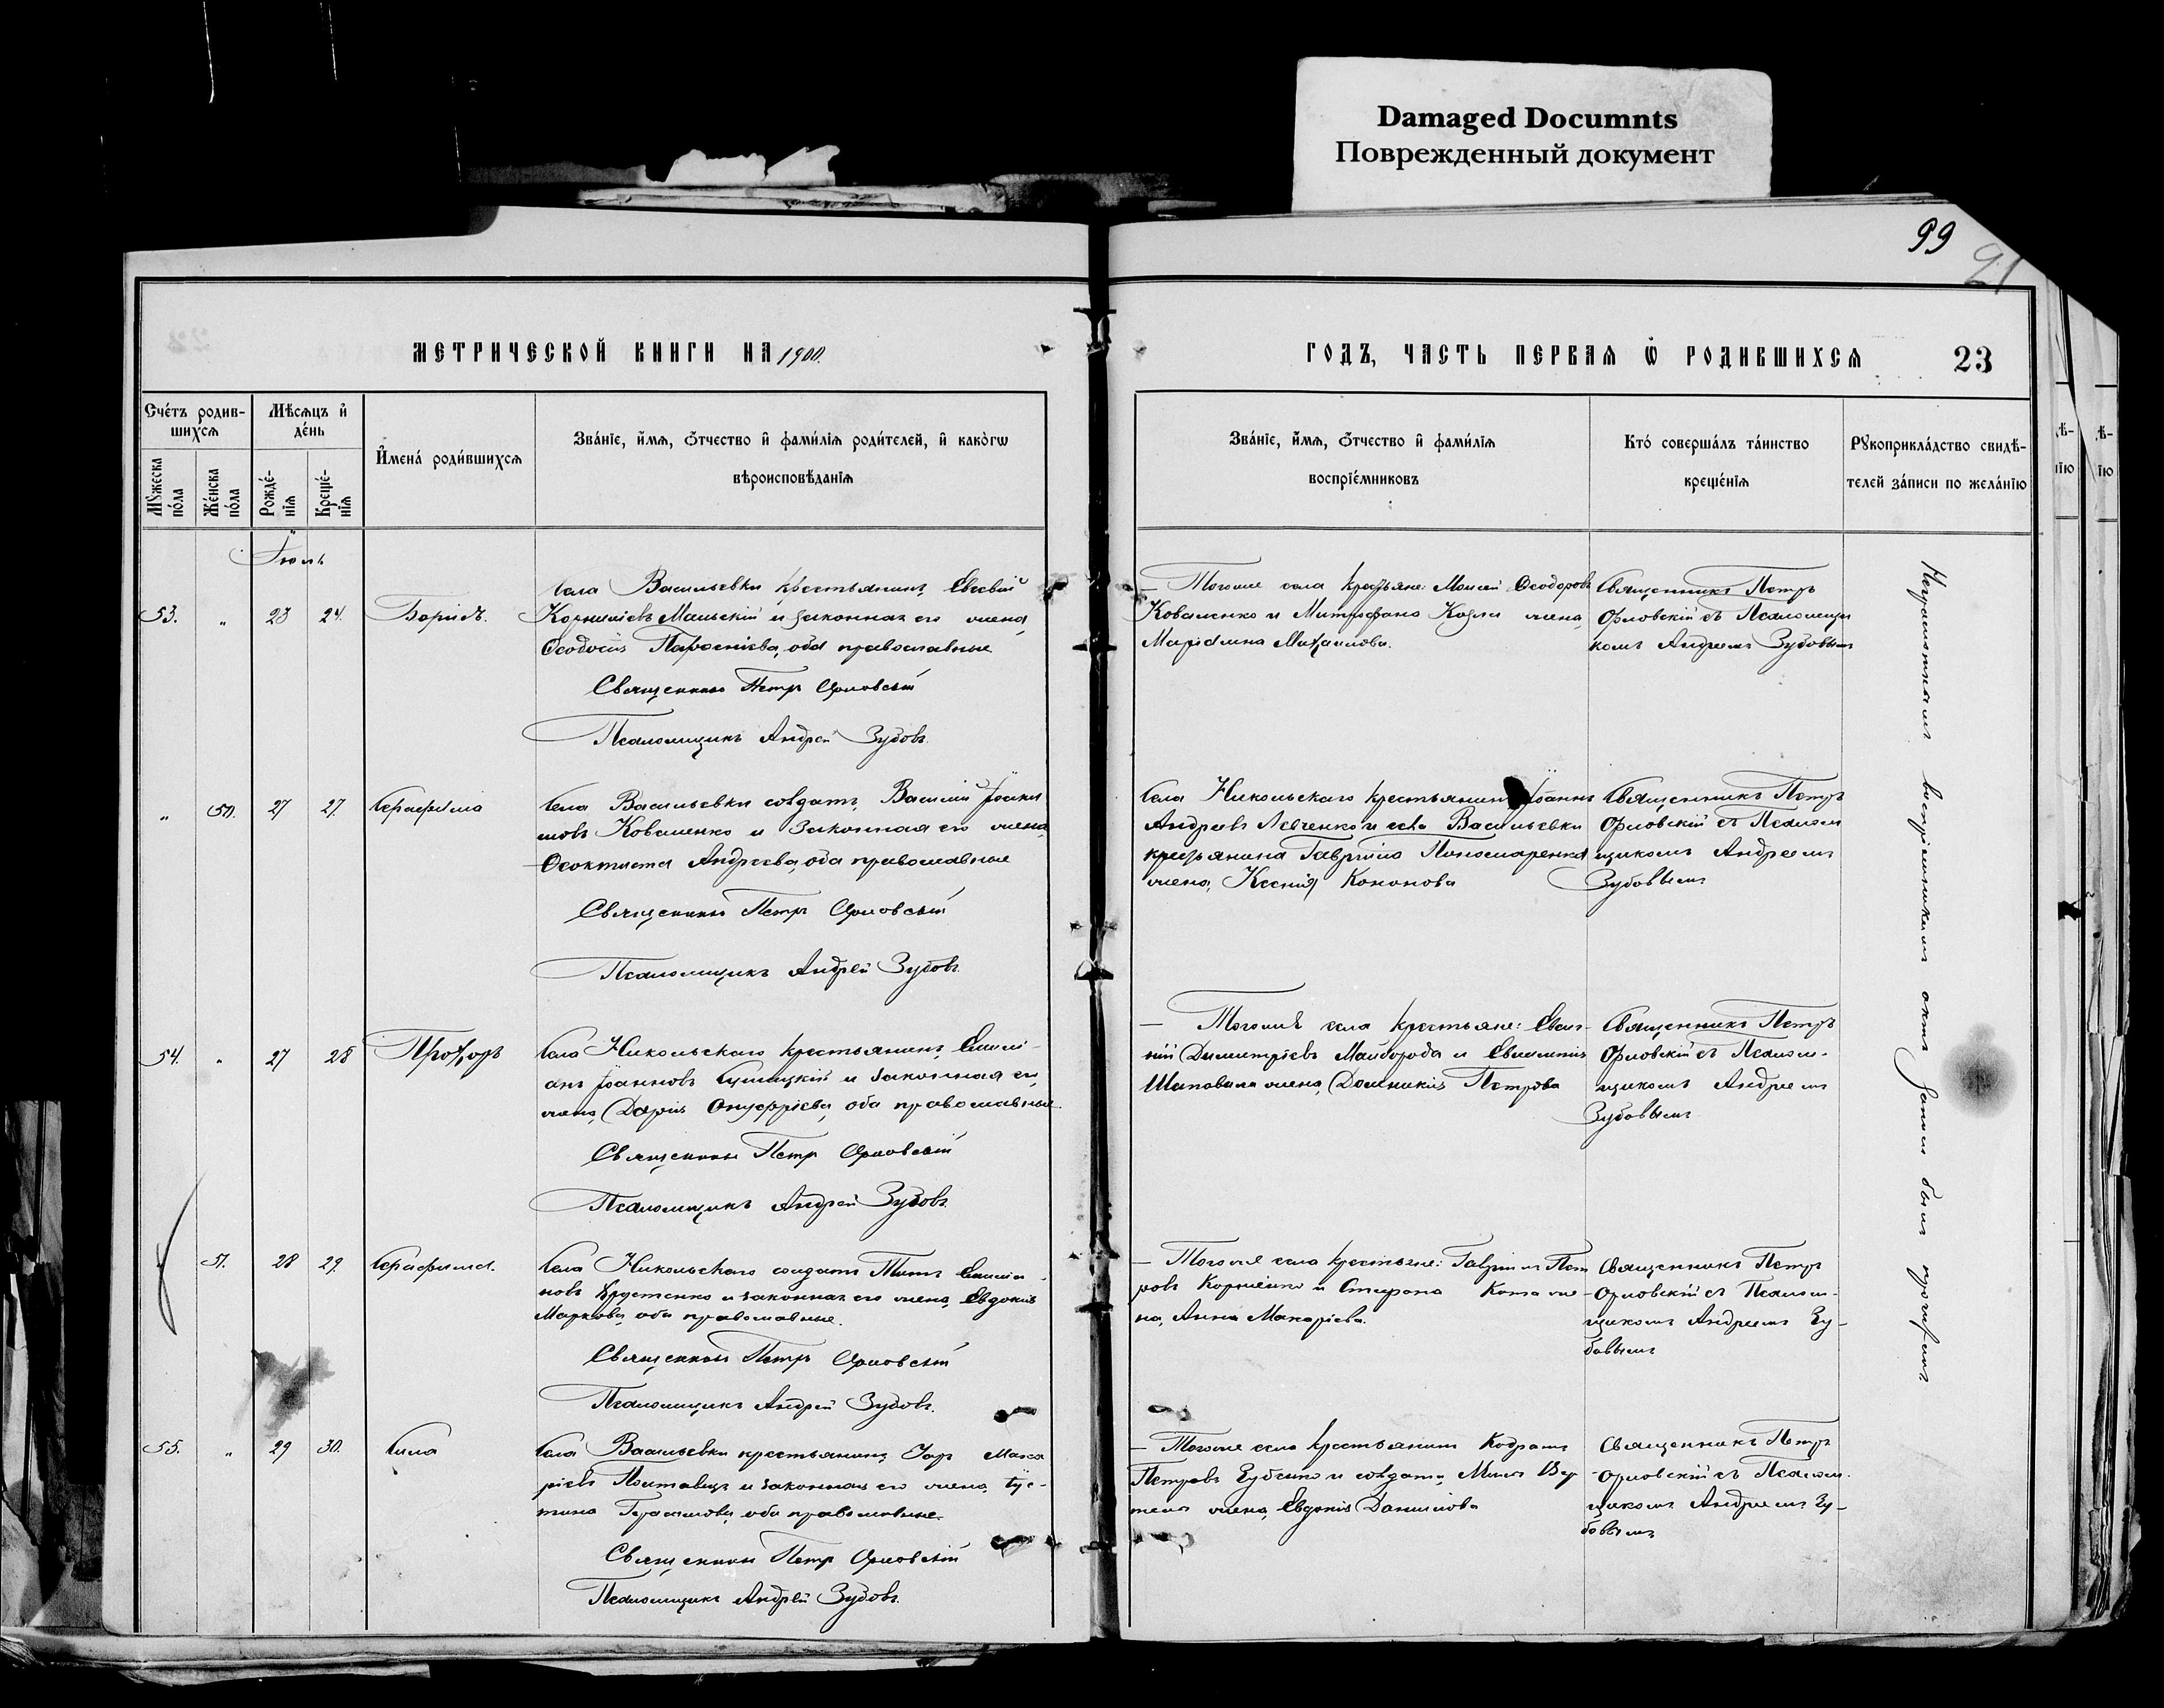 Damaged Documnts
Поврежденный документ
99
21
МЕТРИЧЕСКОЙ КНИГИ НА 1900.
ГОДЪ, ЧАСТЬ ПЕРВАЯ Ѿ РОДИВШИХСЯ 23
Счéтъ родив-
шихсѧ
Мѣсѧцъ и҆
дéнь
Мꙋ́жеска
пóла
Жéнска
пóла
Рождé-
нїѧ
Крещé-
нїѧ
И҆мена́ роди́вшихсѧ
Зва́нїе, и҆́мѧ, ѻ҆́тчество и҆ фами́лїѧ роди́телей, и҆ како́гѡ
вѣроисповѣ́данїѧ
Зва́нїе, и҆́мѧ, ѻ҆́тчество и҆ фами́лїѧ
воспрїе́мниковъ
Кто́ соверша́лъ та́инство
креще́нїѧ
Рꙋкоприкла́дство свидѣ́-
телей за́писи по жела́нїю
Іюль
53. " 23 24. Борисъ.
Села Васильевки крестьянинъ Евсевій
Корнилiевъ Мальскій и законная его жена,
Ѳеодосія Парѳеніева, оба православные
Священникъ Петръ Орловскій
Псаломщикъ Андрей Зубовъ.
Тогоже села крестьяне: Моисей Ѳеодоровъ
Коваленко и Митрофана Козли жена,
Марiамна Михаилова.
Священникъ Петръ
Орловскій съ Псаломщи
комъ Андреемъ Зубовымъ
" 50. 27 27. Серафима
Села Васильевки солдатъ, Василій Іоаки
мовъ Коваленко и Законная его жена,
Ѳеоктиста Андреева, оба православные
Священникъ Петръ Орловскій
Псаломщикъ Андрей Зубовъ.
Села Никольскаго крестьянинъ Іоаннъ
Андреевъ Левченко и села Васильевки
крестьянина Гавріила Пономаренка
жена, Ксенія Кононова
Священникъ Петръ
Орловскій съ Псалом
щикомъ Андреемъ
Зубовымъ
54. " 27 28 Прохоръ
Села Никольскаго крестьянинъ, Емили-
анъ Іоанновъ и законная его
жена, Дарія Онуфріева, оба православные.
Священникъ Петръ Орловскій
Псаломщикъ Андрей Зубовъ.
Тогоже села крестьяне: Евге-
ній Димитріевъ Майборода и Евлампія
Шаповала жена, Домникія Петрова
Священникъ Петръ
Орловскій съ Псалом-
щикомъ Андреемъ
Зубовымъ
51. 28 29. Серафима.
Села Никольскаго солдатъ Титъ Емилiа
новъ и законная его жена, Евдокія
Маркова, оба православные.
Священникъ Петръ Орловскій
Псаломщикъ Андрей Зубовъ.
Тогоже села крестьяне: Гавріилъ Пет
ровъ Корніенко и Стефана Кота же-
на, Анна Макаріева.
Священникъ Петръ
Орловскій съ Псалом-
щикомъ Андреемъ Зу-
бовымъ
55. " 29 30. Сила
Села Васильевки крестьянинъ, Мака
ріевъ и законная его жена, Іус-
тина Герасимова, оба православные.
Священникъ Петръ Орловскій
Псаломщикъ Андрей Зубовъ.
Тогоже села крестьянинъ Кодратъ
Петровъ Зубенко и солдата,
жена, Евдокія Даниилова
Священникъ Петръ
Орловскій съ Псалом-
щикомъ Андреемъ Зу-
бовымъ
Неграмотнымъ воспріемникамъ актъ записи былъ прочитанъ.